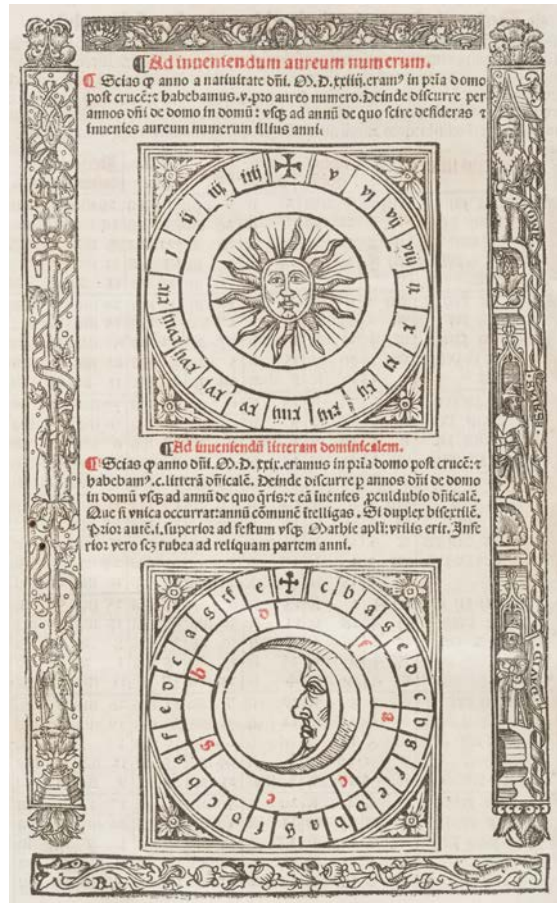 ¶Ad inueniendum aureum numerum.
¶ Scias ꝙ anno a natiuitate dñi. M.D.xxiiij.eramꝰ in pria domo
post crucē: ⁊ habebamus.v.pro aureo numero.Deinde discurre per
annos dñi de domo in domū: vsqꝫ ad annū de quo scire desideras ⁊
inuenies aureum numerum illius anni.
v vj vij viij ix x xj xij xiij xiiij xv xvj xvij xviij xix j ij iij iiij
¶Ad inueniendū litteram dominicalem.
¶ Scias ꝙ anno dñi. M.D. xxix.eramus in pria domo post crucē: ⁊
habebamꝰ.c.litterā dñicalē. Deinde discurre ꝑ annos dñi de domo
in domū vsqꝫ ad annū de quo q̄ris: ⁊ eā iuenies ꝓculdubio dñicalē.
Que si vnica occurrat: annū cōmunē ītelligas. Si duplex bisextilē.
Prior autē.i.superior ad festum vsqꝫ Mathie apli: vtilis erit. Infe
rior vero scꝫ rubea ad reliquam partem anni.
c b a g e d c b g f e d b a g f d c b a f e d c a g f e
f a c e g b d